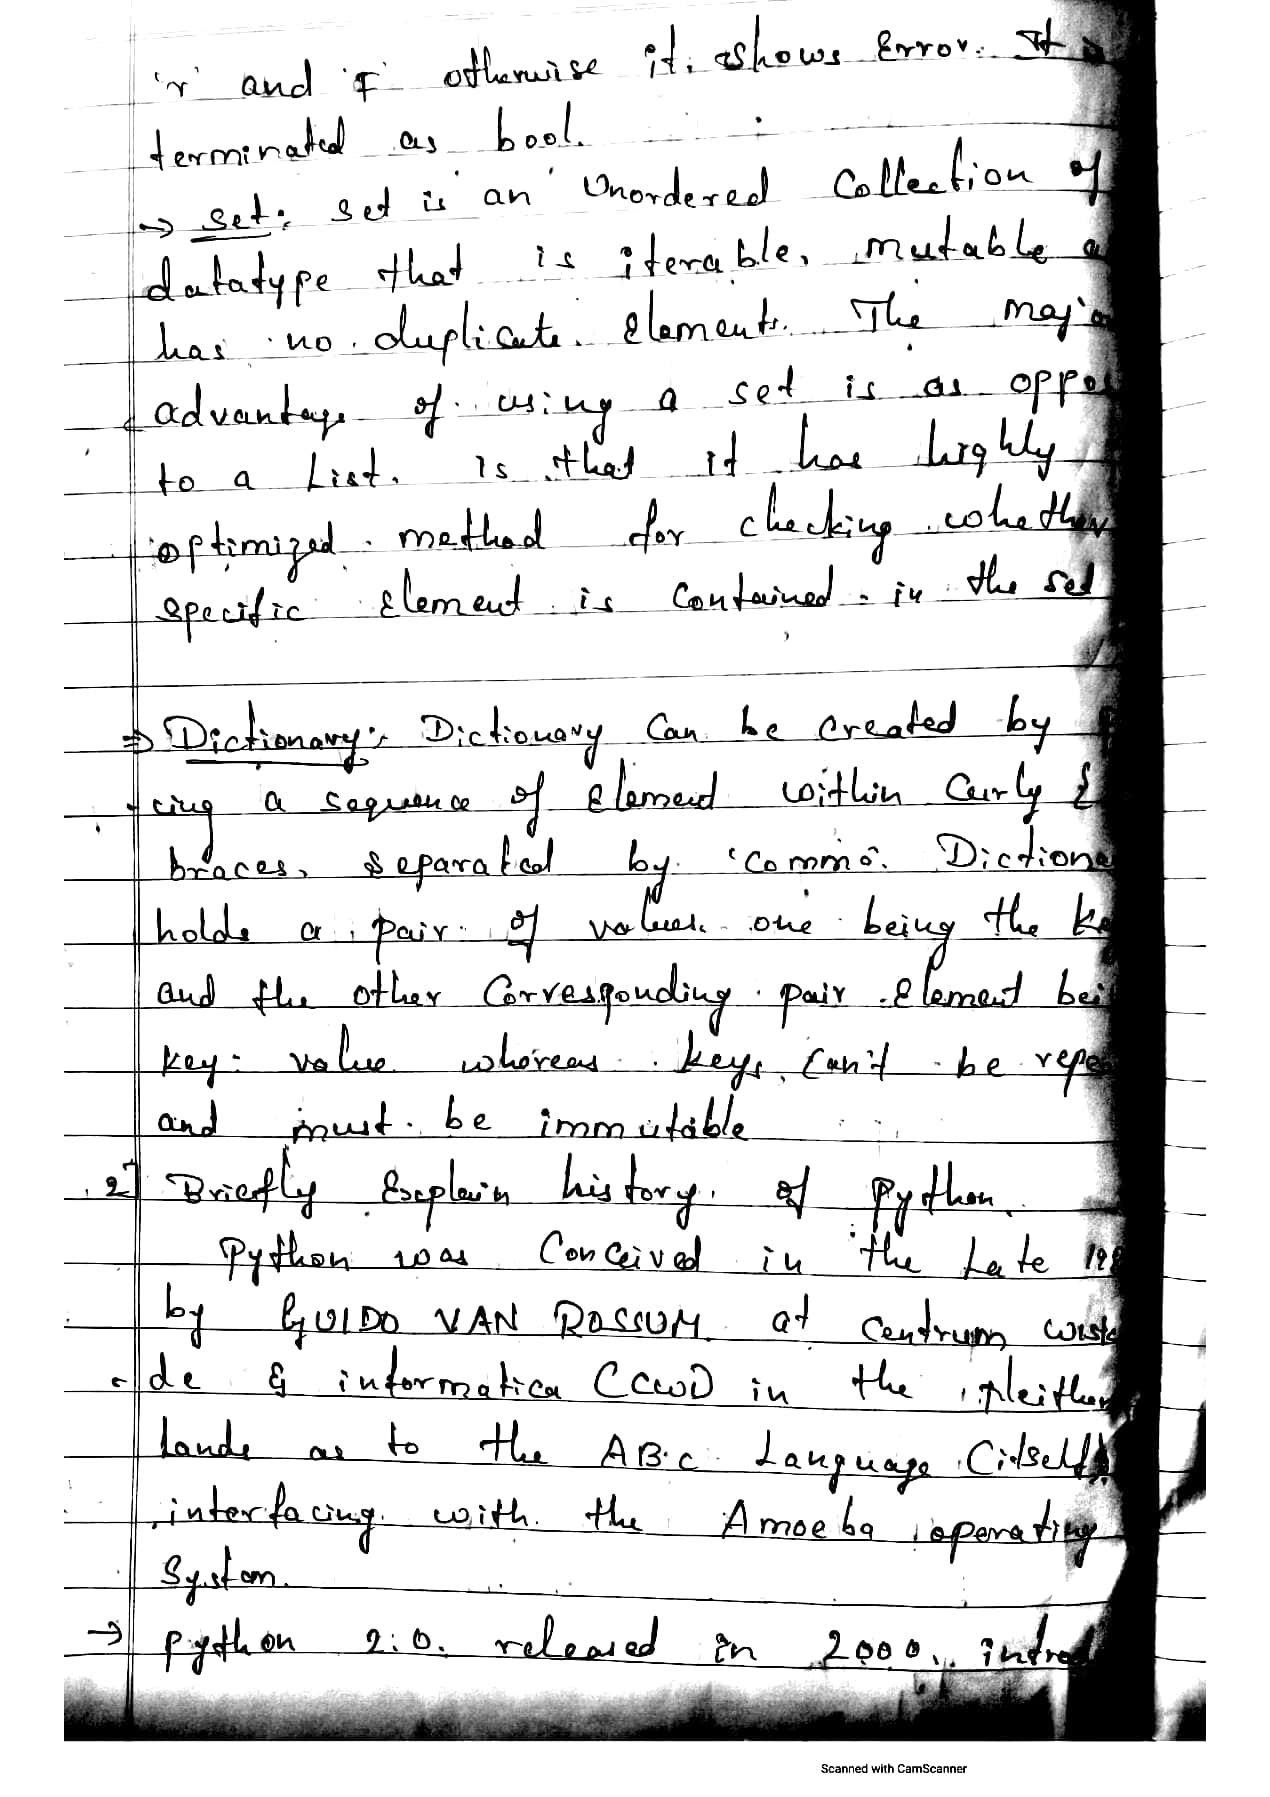 'r' and 'F' otherwise it. shows Error. It
terminated as bool.
→ Set: Set is an Unordered Collection of
datatype that is iterable, mutable
has no duplicate. Elements. The majo
advantage of using a set is as oppo
to a List. Is that it has highly
optimized method for checking whether
specific Element is Contained in the set
⇒ Dictionary: Dictionary Can be Created by
cing a sequence of Element within Curly
braces, separated by 'Comma'. Dictiona
holds a pair of values. one being the Ke
and the other Corresponding pair Element bei
key: value whereas keys Can't be repe
and must be immutable
2] Briefly Explain history of Python.
Python was Conceived in the Late 198
by GUIDO VAN ROSSUM at Centrum wisk
de & informatica (CWI) in the Neither
lands as to the ABC Language (itself)
interfacing with the Amoeba operating
System.
→ Python 2.0. released in 2000, introd
Scanned with CamScanner